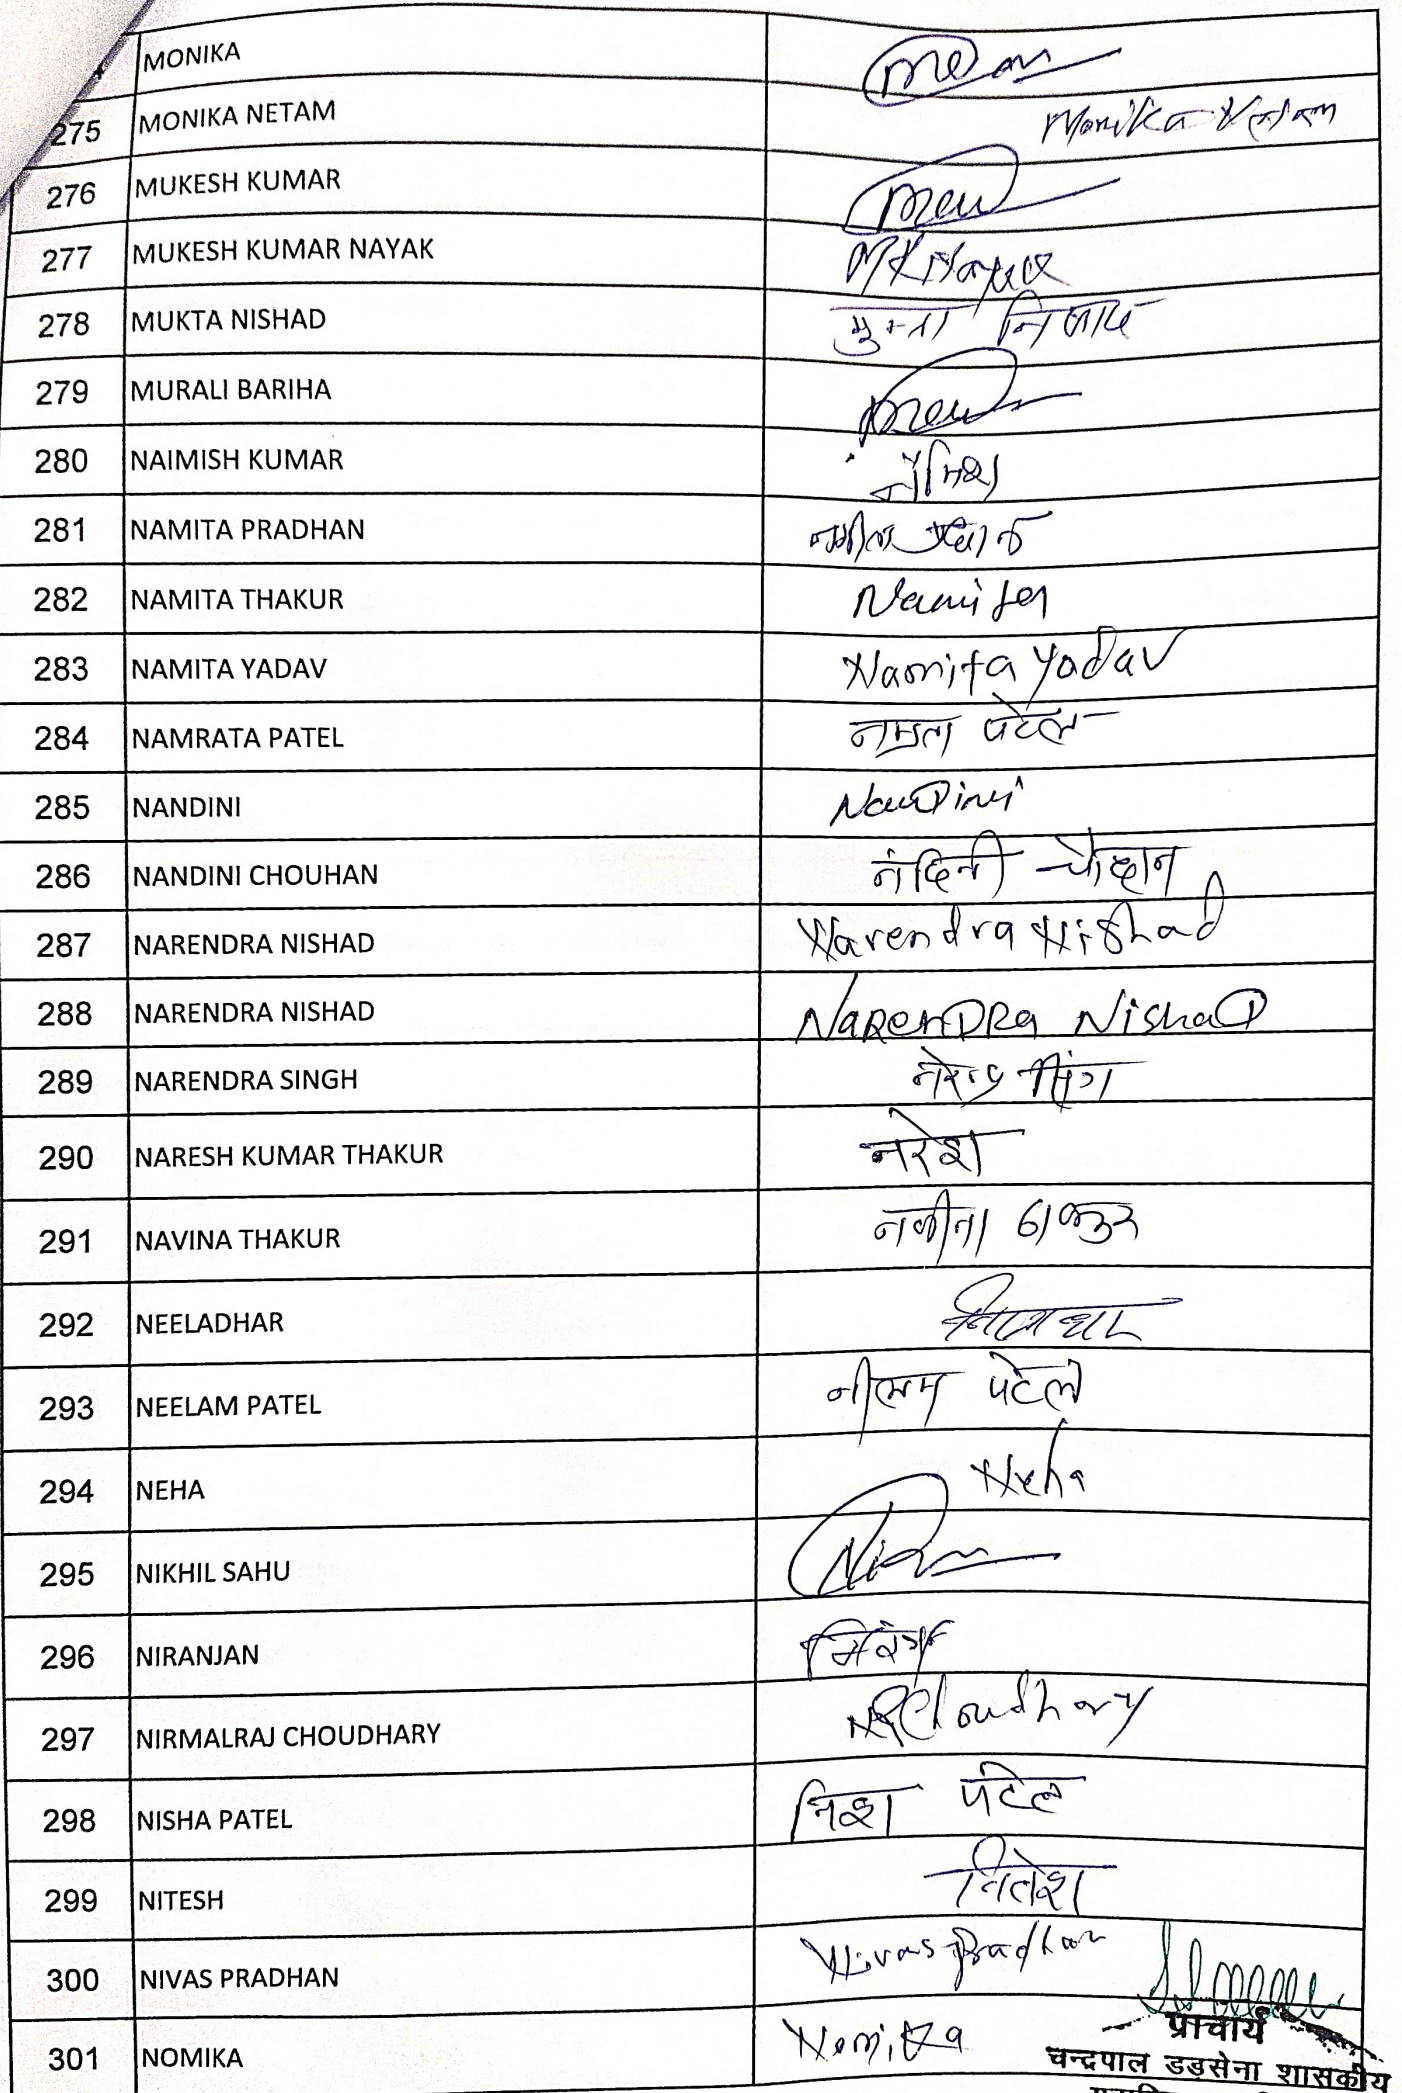 MONIKA
275 MONIKA NETAM Monika Netam
276 MUKESH KUMAR
277 MUKESH KUMAR NAYAK MKNayak
278 MUKTA NISHAD मुक्ता निषाद
279 MURALI BARIHA
280 NAIMISH KUMAR नैमिश
281 NAMITA PRADHAN
282 NAMITA THAKUR Namita
283 NAMITA YADAV Namita Yadav
284 NAMRATA PATEL नम्रता पटेल
285 NANDINI Nandini
286 NANDINI CHOUHAN नंदिनी चौहान
287 NARENDRA NISHAD Narendra Nishad
288 NARENDRA NISHAD NARENDRA NishaD
289 NARENDRA SINGH नरेन्द्र सिंग
290 NARESH KUMAR THAKUR नरेश
291 NAVINA THAKUR नवीना ठाकुर
292 NEELADHAR
293 NEELAM PATEL नीलम पटेल
294 NEHA Neha
295 NIKHIL SAHU
296 NIRANJAN
297 NIRMALRAJ CHOUDHARY NRChoudhary
298 NISHA PATEL निशा पटेल
299 NITESH नितेश
300 NIVAS PRADHAN Nivas Pradhan
301 NOMIKA Nomika
प्राचार्य
चन्द्रपाल डड़सेना शासकीय